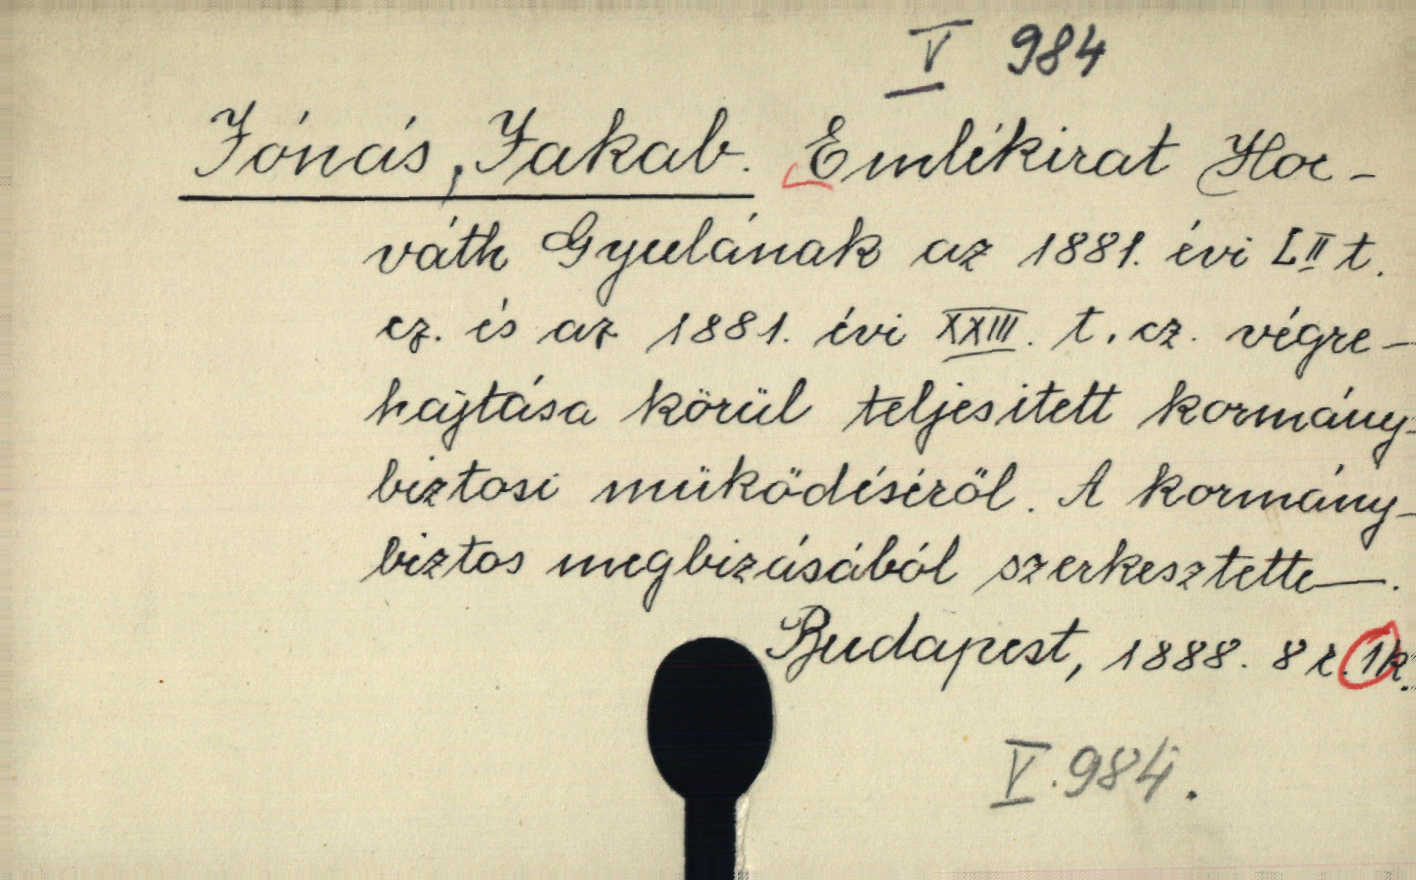 V 984
Jónás, Jakab. Emlékirat Hor-
váth Gyulának az 1881. évi LII t.
cz. és az 1881. évi XXIII. t. cz. végre-
hajtása körül teljesitett kormány-
biztosi működéséről. A kormány-
biztos megbizásából szerkesztette—.
Budapest, 1888. 8 r. 1k.
V. 984.